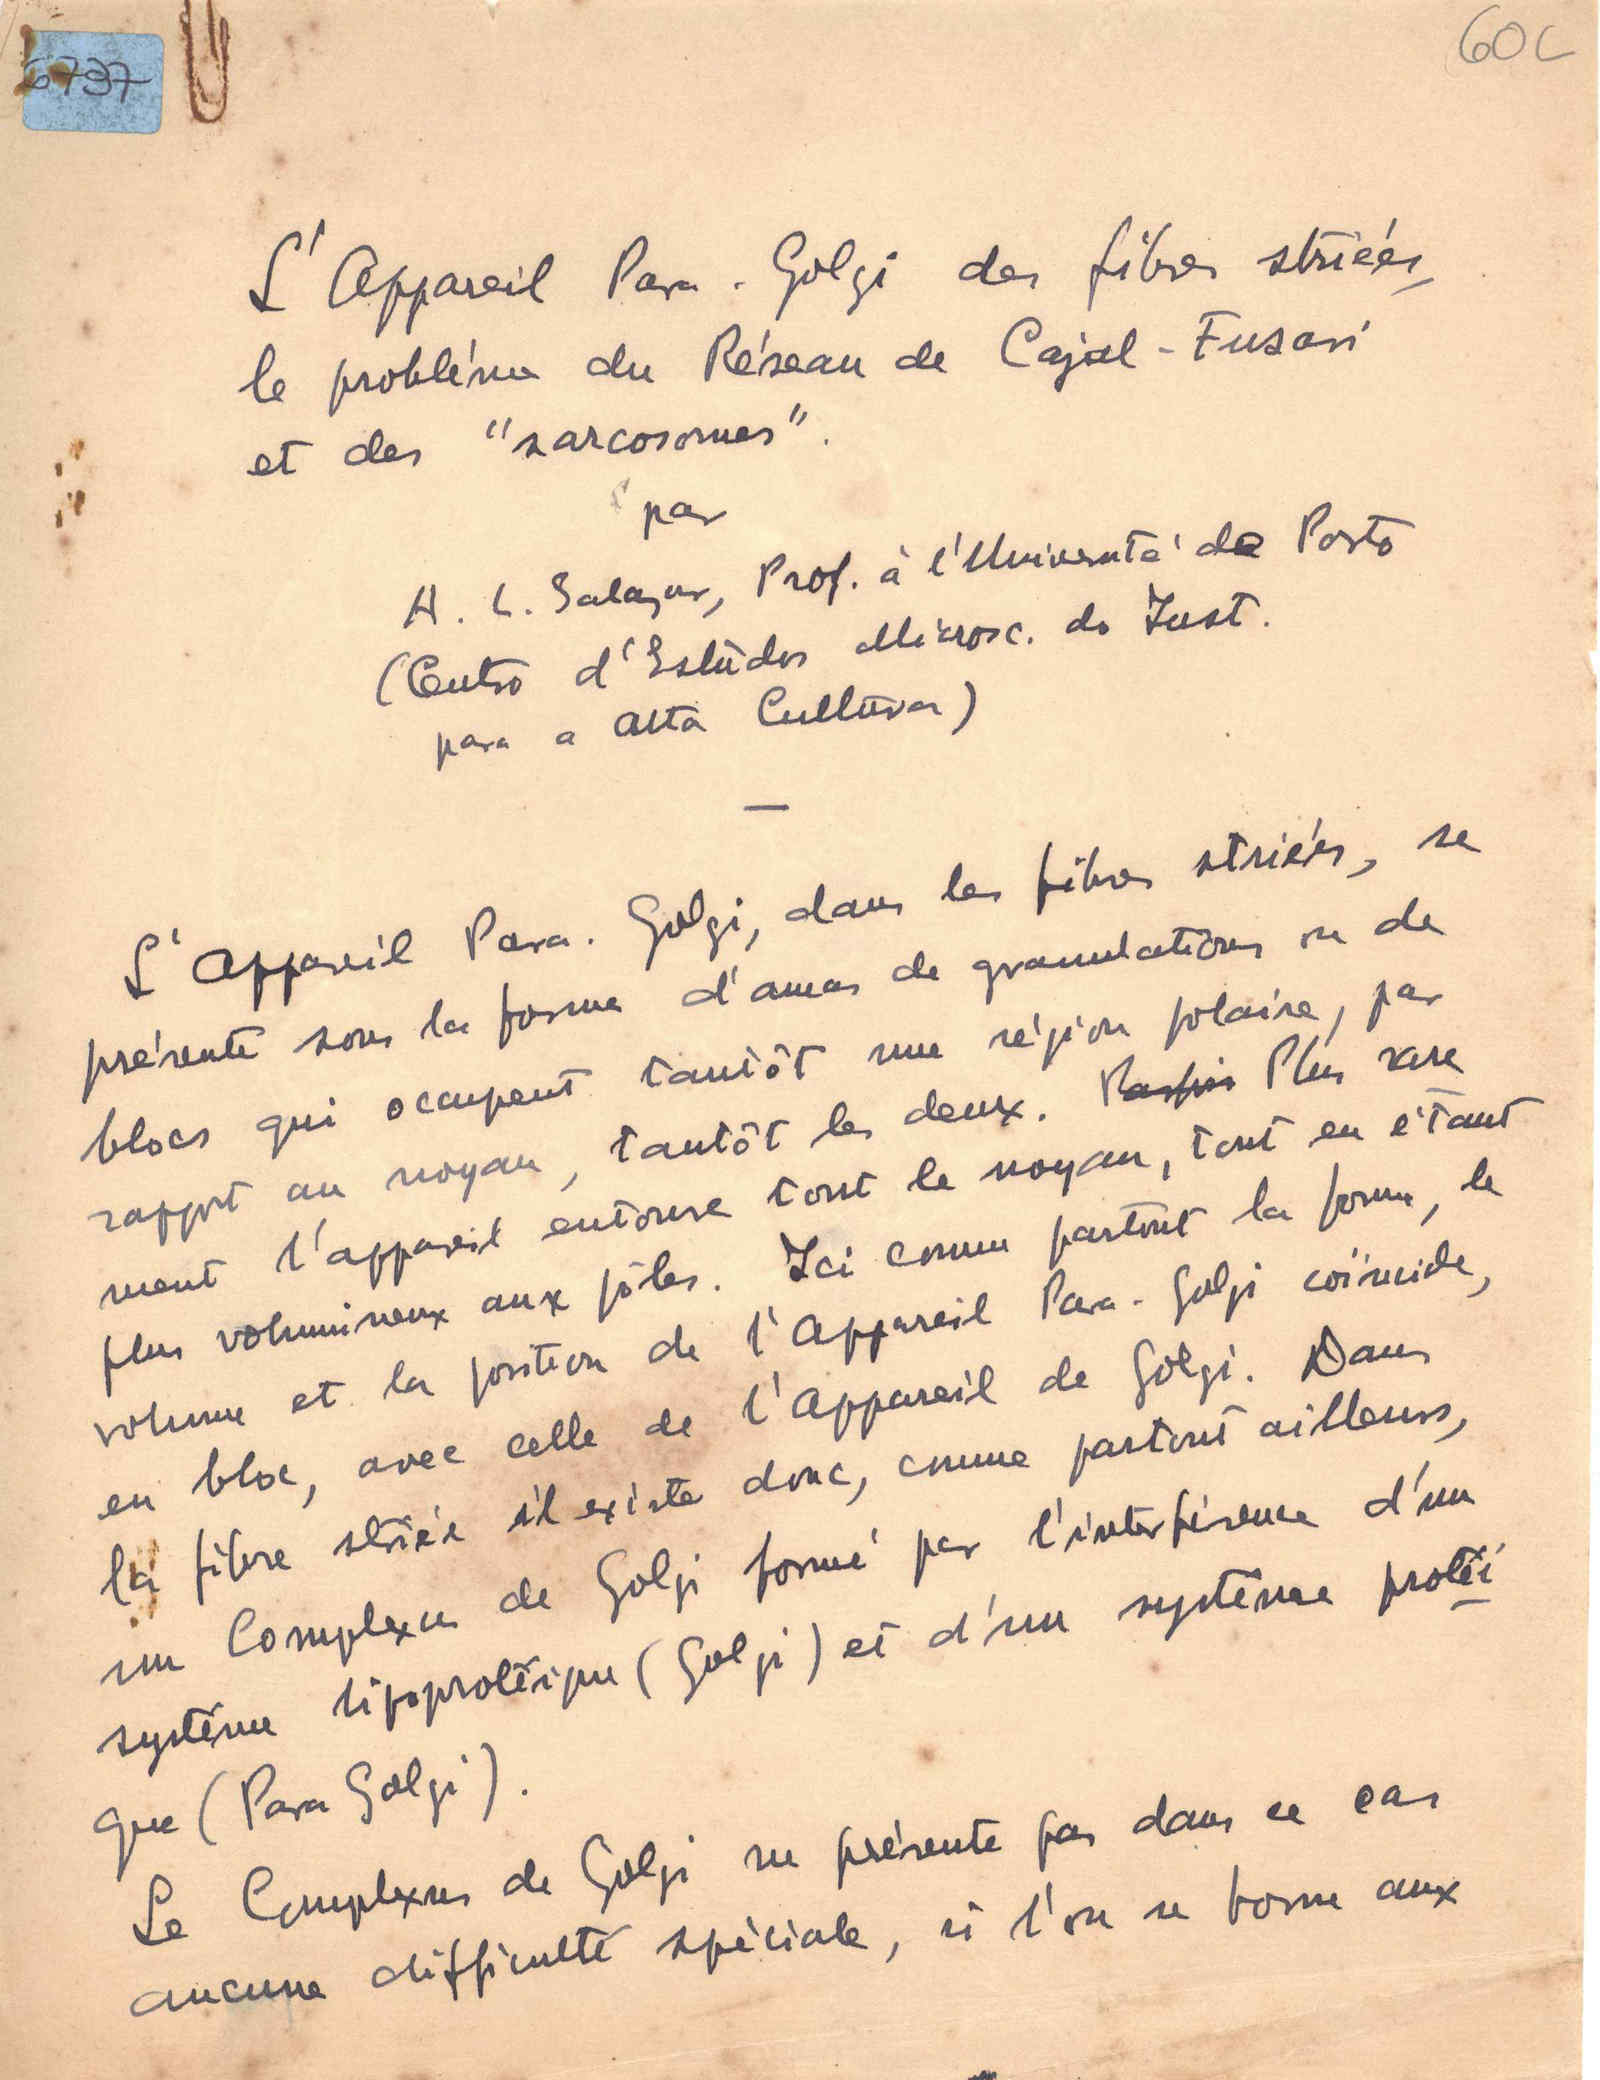 6737
60C
L'Appareil Para-Golgi des fibres striées,
le problème du Réseau de Cajal-Fusari
et des "sarcosomes".
par
A. L. Salazar, Prof. à l'Université de Porto
(Centro d'Estudos Microsc. do Inst.
para a Alta Cultura)
—
L'Appareil Para-Golgi, dans les fibres striées, se
présente sous la forme d'amas de granulations ou de
blocs qui occupent tantôt une région polaire, par
rapport au noyau, tantôt les deux. Plus rare
ment l'appareil entoure tout le noyau, tout en étant
plus volumineux aux pôles. Ici comme partout la forme, le
volume et la position de l'Appareil Para-Golgi coïncide,
en bloc, avec celle de l'Appareil de Golgi. Dans
la fibre striée il existe donc, comme partout ailleurs,
un Complexus de Golgi formé par l'interférence d'un
système lipoprotéique (Golgi) et d'un système protéi
que (Para Golgi).
Le Complexus de Golgi ne présente pas dans ce cas
aucune difficulté spéciale, si l'on se borne aux